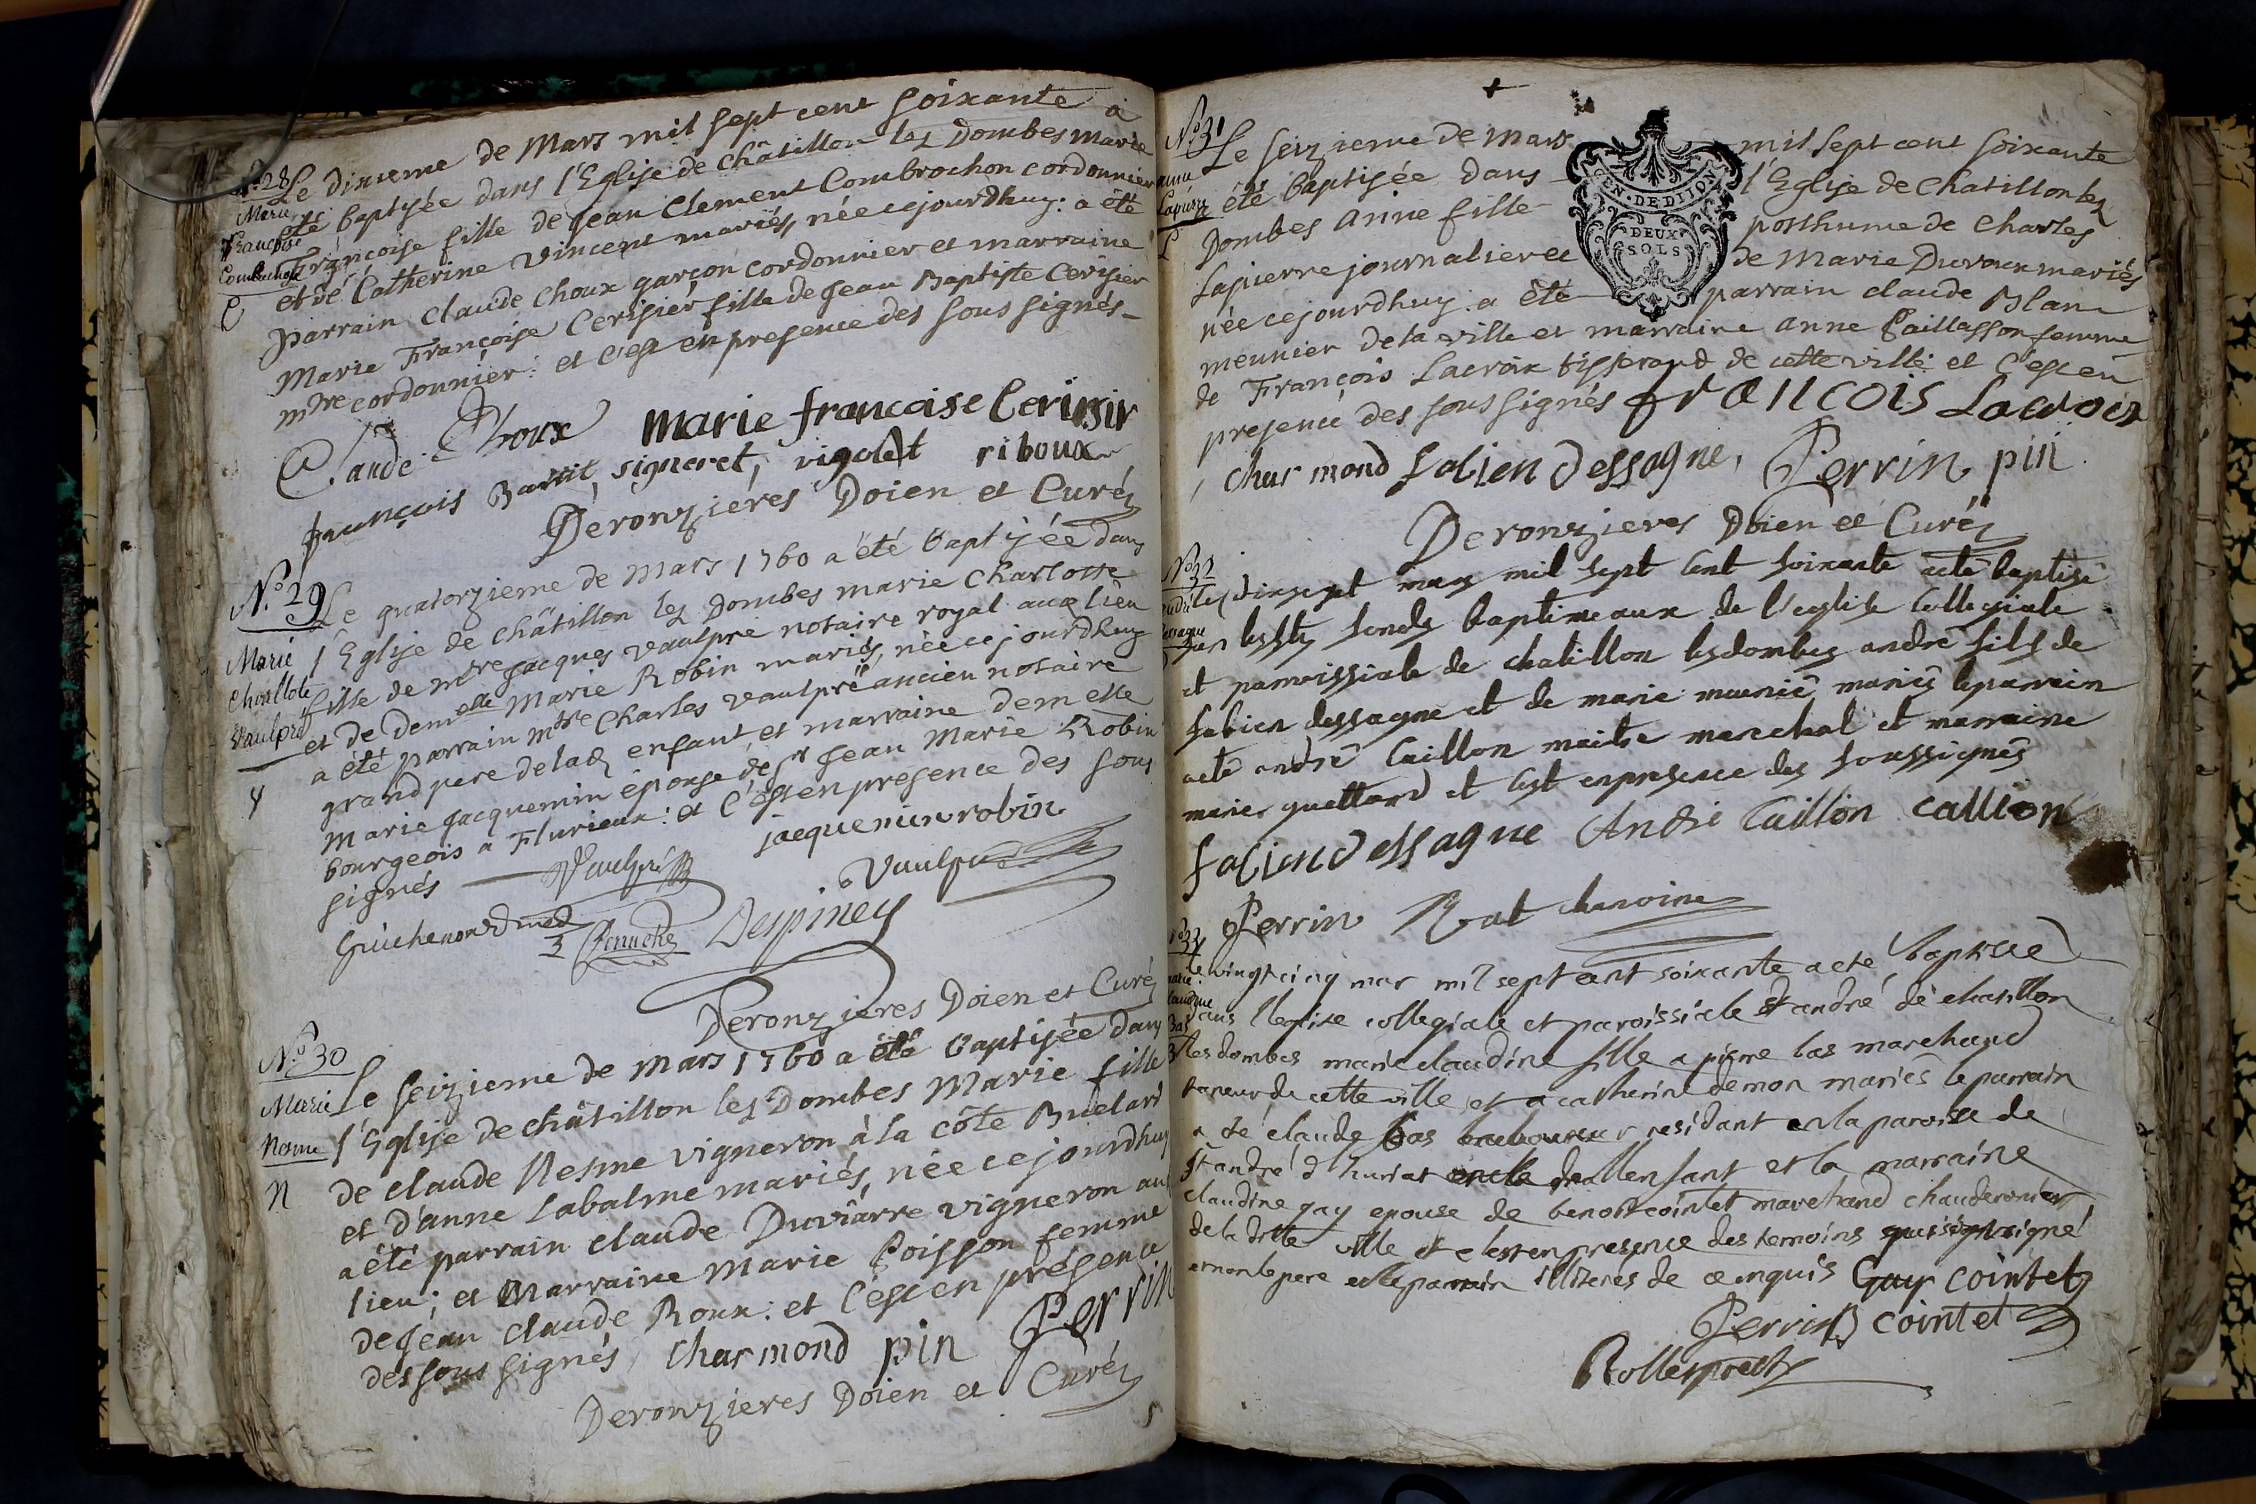 N.° 28
Marie
Françoise
Combrochon
C
Le dixieme de Mars mil sept cent soixante a
été baptisée dans l'Eglise de châtillon lez Dombes Marie
Françoise fille de Jean Clement Combrochon cordonnier
et de Catherine Vincent mariés, née cejourdhuy: a été
parrain Claude Choux garçon cordonnier et marraine
Marie Françoise Cerisier fille de Jean Baptiste Cerisier
mtre cordonnier: et c'est en presence des sous signés-
Claude Choux marie francoise Cerisir
françois Barrit, signeret, vigolet riboux
Deronzieres Doien et Curé
N.° 29
Marie
Charllote
Vaulpré
V
Le quatorzieme de Mars 1760 a été baptisée dans
l'Eglise de châtillon lez Dombes marie Charlotte
fille de mtre Jacques Vaulpré notaire royal au lieu
et de demelle Marie Robin mariés, née cejourdhuy
a été parrain mtre Charles Vaulpré ancien notaire
grand pere delad enfant et marraine demelle
Marie Jacquemin épouse de sr Jean Marie Robin
bourgeois a Flurieux: et c'est en presence des sous
signés Vaulpré jacquemin robin
Vaulpré
Guichenon Dmed Despiney
Deronzieres Doien et Curé
N.° 30
Marie
Nesme
N
Le seizieme de Mars 1760 a été baptisée dans
l'Eglise de châtillon lez Dombes Marie fille
de claude Nesme vigneron à la côte Buelard
et d'anne Labalme mariés, née cejourdhuy
a été parrain claude Duviarre vigneron au
lieu; et Marraine Marie Poisson femme
de Jean Claude Roux: et c'est en présence
des sous signés, charmond pin Perrin
Deronzieres Doien et Curé
N.° 31
anne
Lapierre
L
Le seizieme de Mars mil sept cent soixante
a été baptisée dans l'Eglise de Chatillon lez
Dombes anne fille posthume de Charles
Lapierre journalier et de Marie Duroux mariés
née cejourdhuy a été parrain claude Blanc
meunier de la ville et marraine anne Paillasson femme
de François Lacroix tisserand de cette ville: et c'est en
presence des sous signés francois Lacroix
charmond fabien dessagne, Perrin pin
Deronzieres Doien et Curé
GEN. DE DIJON
DEUX
SOLS
N.° 32
Le dixsept mars mil sept cent soixante aeté baptisé
sur les fonds baptimeaux de l'eglise Collegiale
et parroissiale de chatillon lesdombes andré fils de
fabien dessagne et de marie meunié mariés leparrain
aeté andré Caillon maitre marechal et marraine
marie guettard et cest enpresence des soussignés
fabien dessagne André Caillon callion
Perrin Rat chanoine
N° 33
marie
claudine
Bas
B
le vingtcinq mar mil sept cent soixante a eté baptisée
dans lleglise collegiale et paroissiale st andré de chatillon
les dombes marie claudine fille a pierre bas marchand
taneur de cette ville et a catherine demon mariés le parrain
a eté claude bas laboureur residant en la paroisse de
st andré d'huriat oncle de allenfant et la marraine
claudine gay epouse de benoit cointet marchand chauderonier
de la ditte ville et cest en presence des temoins soussigné
et non le pere et le parrain illiterés de ce enquis Gay cointet
Perrin B cointet